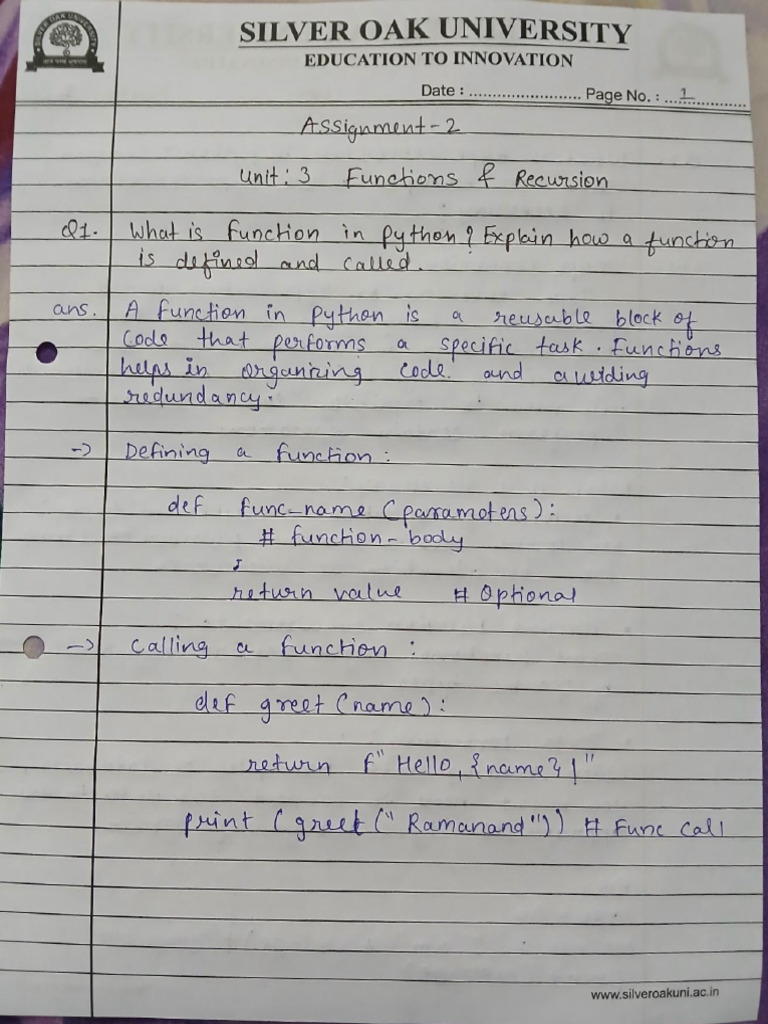 SILVER OAK UNIVERSITY
SILVER OAK UNIVERSITY
EDUCATION TO INNOVATION
Date : .......................... Page No. : ...1...............
Assignment-2
Unit: 3 Functions & Recursion
Q1. What is function in python? Explain how a function
is defined and called.
ans. A function in python is a reusable block of
code that performs a specific task. Functions
helps in organizing code and avoiding
redundancy.
-> Defining a function:
def func-name (parameters):
# function-body
return value # Optional
-> Calling a function:
def greet (name):
return f"Hello, {name}!"
print (greet ("Ramanand")) # Func Call
www.silveroakuni.ac.in